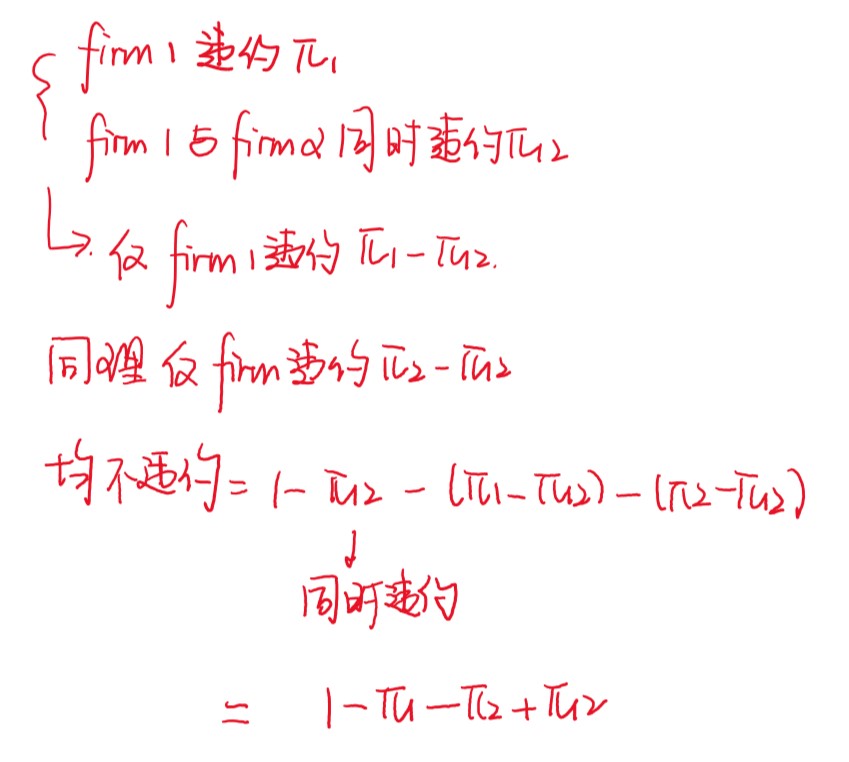 firm 1 违约 π₁
firm 1 与 firm 2 同时违约 π₁₂
↳ 仅 firm 1 违约 π₁ - π₁₂.
同理 仅 firm 违约 π₂ - π₁₂
均不违约 = 1 - π₁₂ - (π₁ - π₁₂) - (π₂ - π₁₂)
↓
同时违约
= 1 - π₁ - π₂ + π₁₂